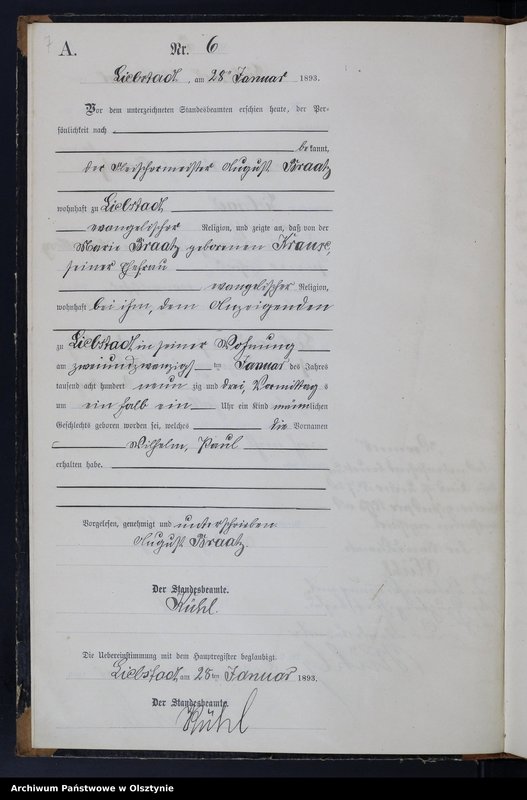 7
A.
Nr. 6
Liebstadt, am 28 Januar 1893.
Vor dem unterzeichneten Standesbeamten erschien heute, der Per-
sönlichkeit nach
bekannt,
der Fleischermeister August Braatz
wohnhaft zu Liebstadt
evangelischer Religion, und zeigte an, daß von der
Marie Braatz geborenen Krause,
seiner Ehefrau
evangelischer Religion,
wohnhaft bei ihm, dem Anzeigenden
zu Liebstadt in seiner Wohnung
am zweiundzwanzigsten Januar des Jahres
tausend acht hundert neunzig und drei, Vormittags
um ein halb ein Uhr ein Kind männlichen
Geschlechts geboren worden sei, welches die Vornamen
Wilhelm, Paul
erhalten habe.
Vorgelesen, genehmigt und unterschrieben
August Braatz.
Der Standesbeamte.
Kühl.
Die Uebereinstimmung mit dem Hauptregister beglaubigt.
Liebstadt, am 28ten Januar 1893.
Der Standesbeamte.
Kühl
Archiwum Państwowe w Olsztynie